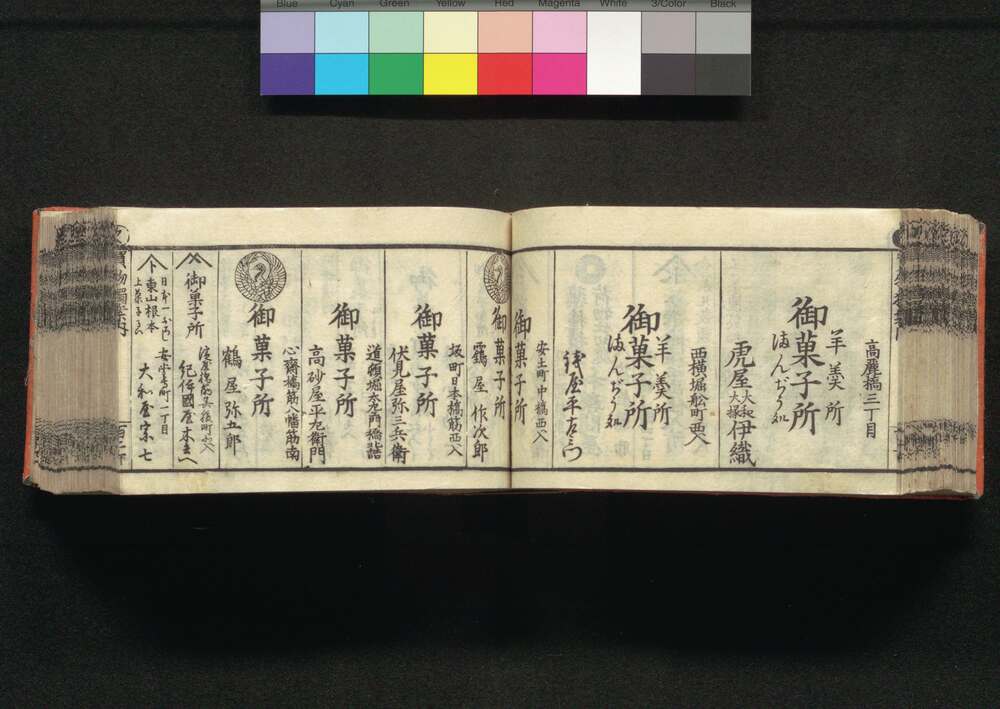 Blue Cyan Green Yellow Red Magenta White 3/Color Black
高麗橋三丁目
羊羹所
御菓子所
まんぢう処
虎屋大和大掾伊織
西横堀舩町西入
羊羹所
御菓子所
まんぢう処
安土町中橋西入
御菓子所
御菓子所
鶴屋作次郎
坂町日本橋筋西入
御菓子所
伏見屋弥三兵衛
道頓堀太左衛門橋詰
御菓子所
高砂屋平九衛門
心斎橋筋八幡筋南
御菓子所
鶴屋弥五郎
御菓子所
紀伊國屋
東山根本
大和屋宗七